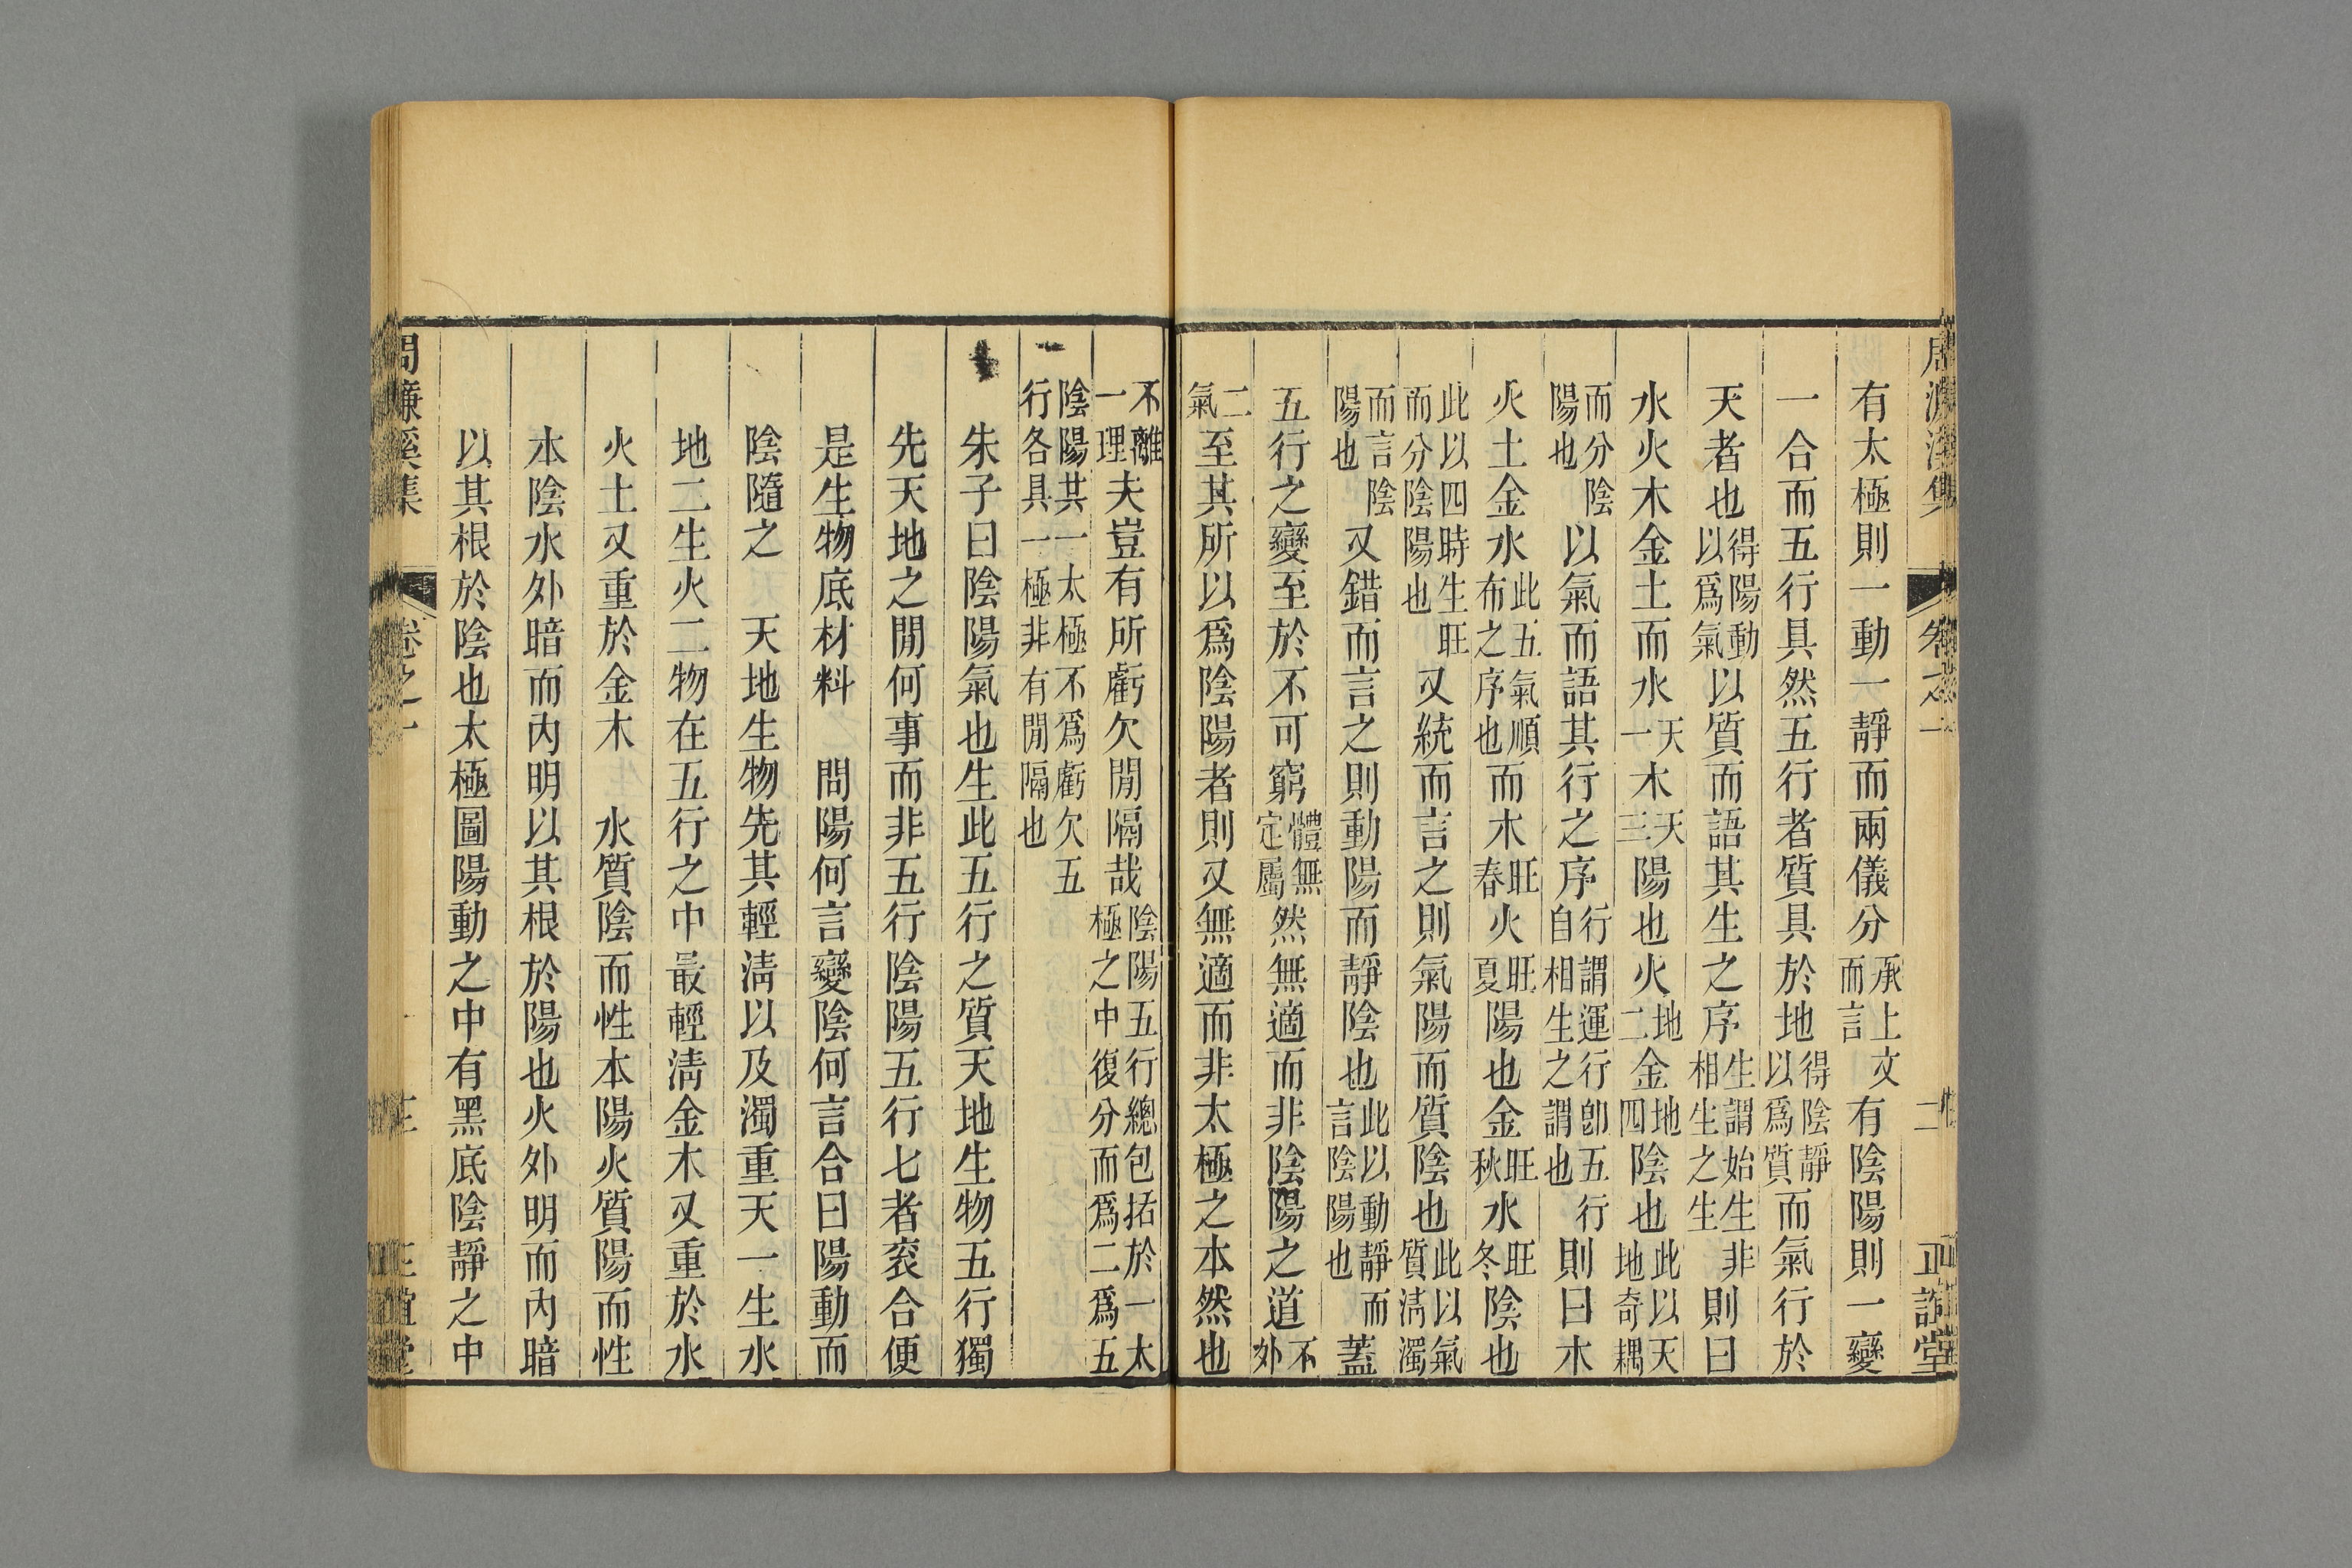 有太極則一動一靜而兩儀分承上文而言有陰陽則一變
一合而五行具然五行者質具於地得陰靜以爲質而氣行於
天者也得陽動以爲氣以質而語其生之序生謂始生非相生之生則曰
水火木金土而水天一木天三陽也火地二金地四陰也此以天地奇耦
而分陰陽也以氣而語其行之序行謂運行卽五行自相生之謂也則曰木
火土金水此五氣順布之序也而木旺春火旺夏陽也金旺秋水旺冬陰也
此以四時生旺而分陰陽也又統而言之則氣陽而質陰也此以氣質清濁
而言陰陽也又錯而言之則動陽而靜陰也此以動靜而言陰陽也蓋
五行之變至於不可窮體無定屬然無適而非陰陽之道不外
二氣至其所以爲陰陽者則又無適而非太極之本然也
不離一理夫豈有所虧欠閒隔哉陰陽五行總包括於一太極之中復分而爲二爲五
陰陽共一太極不爲虧欠五行各具一極非有閒隔也
朱子曰陰陽氣也生此五行之質天地生物五行獨
先天地之閒何事而非五行陰陽五行七者滾合便
是生物底材料　問陽何言變陰何言合曰陽動而
陰隨之　天地生物先其輕清以及濁重天一生水
地二生火二物在五行之中最輕清金木又重於水
火土又重於金木　水質陰而性本陽火質陽而性
本陰水外暗而內明以其根於陽也火外明而內暗
以其根於陰也太極圖陽動之中有黑底陰靜之中
周濂溪集　卷之一